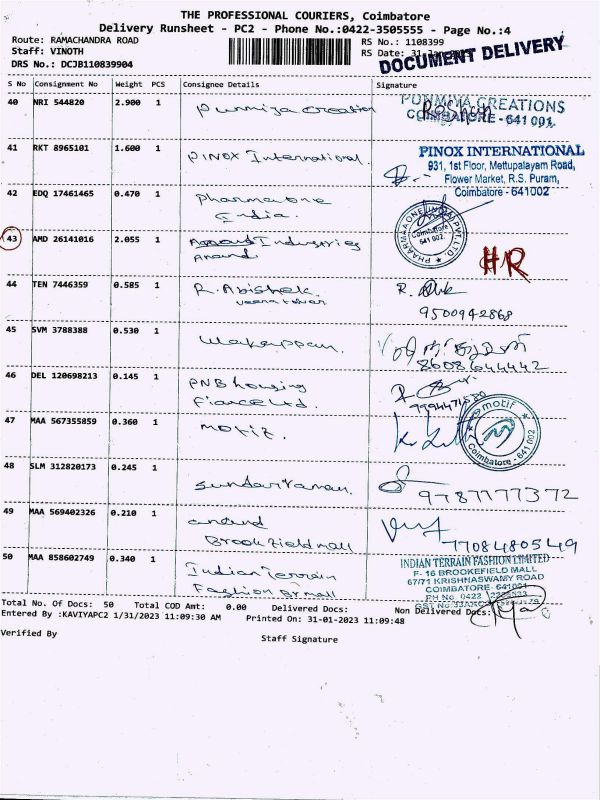 THE PROFESSIONAL COURIERS, Coimbatore
Delivery Runsheet - PC2 - Phone No.:0422-3505555 - Page No.:4
Route: RAMACHANDRA ROAD
RS No.: 1108399
Staff: VINOTH
RS Date: 31-Jan
DOCUMENT DELIVERY
DRS No.: DCJB110839904
S No Consignment No Weight PCS Consignee Details Signature
40 NRI 544820 2.900 1 Punmiya Creation
PUNMIYA CREATIONS
COIMBATORE - 641 001.
41 RKT 8965101 1.600 1 Pinox International.
PINOX INTERNATIONAL
931, 1st Floor, Mettupalayam Road,
Flower Market, R.S. Puram,
Coimbatore - 641002
42 EDQ 17461465 0.470 1 Pharmaone
India.
PHAARMAAONE INDIA PVT. LTD.
Coimbatore
641 002.
43 AMD 26141016 2.055 1 Industries
Anand
HR
44 TEN 7446359 0.585 1 R. Abishek.
9500942868
45 SVM 3788388 0.530 1
8608644442
46 DEL 120698213 0.145 1 PNB housing
Fiance Ltd.
47 MAA 567355859 0.360 1 Motif.
motif
Coimbatore - 641 002
48 SLM 312820173 0.245 1 Sundararaman.
9787177372
49 MAA 569402326 0.210 1 anand
Brookfield mall
7708480549
50 MAA 858602749 0.340 1 Indian Terrain
Fashion Br mall
INDIAN TERRAIN FASHION LIMITED
F- 16 BROOKEFIELD MALL
67/71 KRISHNASWAMY ROAD
COIMBATORE- 641001
Total No. Of Docs: 50 Total COD Amt: 0.00 Delivered Docs: Non Delivered Docs:
Entered By :KAVIYAPC2 1/31/2023 11:09:30 AM Printed On: 31-01-2023 11:09:48
Verified By Staff Signature